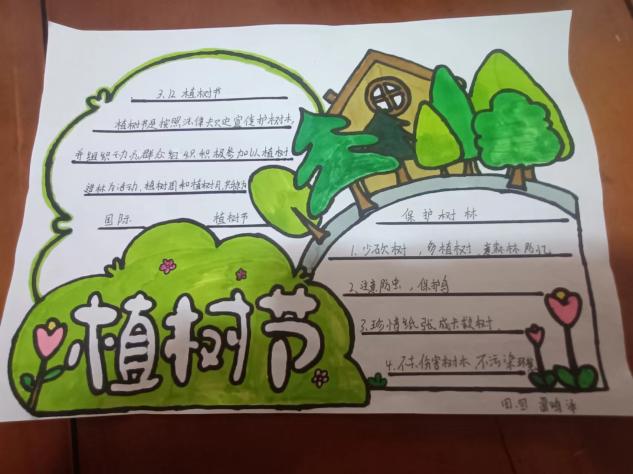 3.12 植树节
植树节是按照法律规定宣传护树木,
并组织动员群众积极参加以植树
造林为活动,植树周和植树月,共称为
国际 植树节
植树节
保护树林
1. 少砍树,多植树,森林防
2. 注意防虫,保护鸟
3. 珍惜纸张,成长数树
4. 不伤害树木 不污染环境